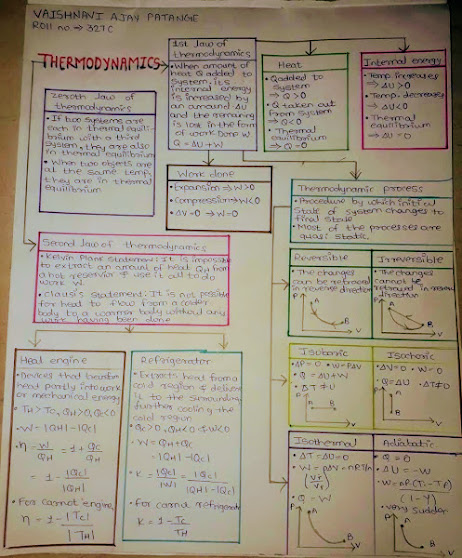 VAISHNAVI AJAY PATANGE
ROll no → 327C
THERMODYNAMICS
1st law of
thermodynamics
• When amount of
heat Q added to
system, its
internal energy
is increased by
an amount ΔU
and the remaining
is lost in the form
of work Done W
Q = ΔU + W
Heat
• Q added to
system
⇒ Q > 0
• Q taken out
from system
⇒ Q < 0
• Thermal
equilibrium
⇒ Q = 0
Internal energy
• Temp. increases
⇒ ΔU > 0
• Temp. decreases
⇒ ΔU < 0
• Thermal
equilibrium
⇒ ΔU = 0
zeroth law of
thermodynamics
• If two systems are
each in thermal equili-
brium with a third
system, they are also
in thermal equilibrium
• When two objects are
at the same temp,
they are in thermal
equilibrium
Work done
• Expansion ⇒ W > 0
• Compression ⇒ W < 0
• ΔV = 0 ⇒ W = 0
Thermodynamic process
• Procedure by which initial
state of system changes to
final state
• Most of the processes are
quasi static.
Second law of thermodynamics
• Kelvin Plank statement: It is impossible
to extract an amount of heat QH from
a hot reservior & use it all to do
work W
• Clausis statement: It is not possible
for head to flow from a colder
body to a warmer body without any
having been done
Reversible
• The changes
can be retraced
in reverse direction
P
A
B
V
Irreversible
• The changes
cannot be
retraced in reverse
direction
P
A
B
V
Isobaric
• ΔP = 0 • W = PΔV
• Q = ΔU + W
• ΔT ≠ 0
P
A B
V
Isochoric
• ΔV = 0 • W = 0
• Q = ΔU • ΔT ≠ 0
P
A
B
V
Isothermal
• ΔT = ΔU = 0
• W = PΔV = nRTln
(Vf/Vi)
• Q = W
P
A
B
V
Adiabatic
• Q = 0
• ΔU = -W
• W = nR(Ti - Tf)
(1 - γ)
• very sudden
P
A
B
V
Heat engine
• Devices that transform
heat partly into work
or mechanical energy
• TH > TC, QH > 0, QC < 0
• W = |QH| - |QC|
• η = W/QH = 1 + QC/QH
= 1 - |QC|/|QH|
• For Carnot engine,
η = 1 - |TC|/|TH|
Refrigerator
• Extracts head from a
cold region & delivers
it to the surrounding
further cooling the
cold region
• QC > 0, QH < 0 & W < 0
• W = QH + QC
= |QH| - |QC|
• K = |QC|/|W| = |QC|/|QH| - |QC|
• For carnot refrigerator
K = 1 - TC/TH